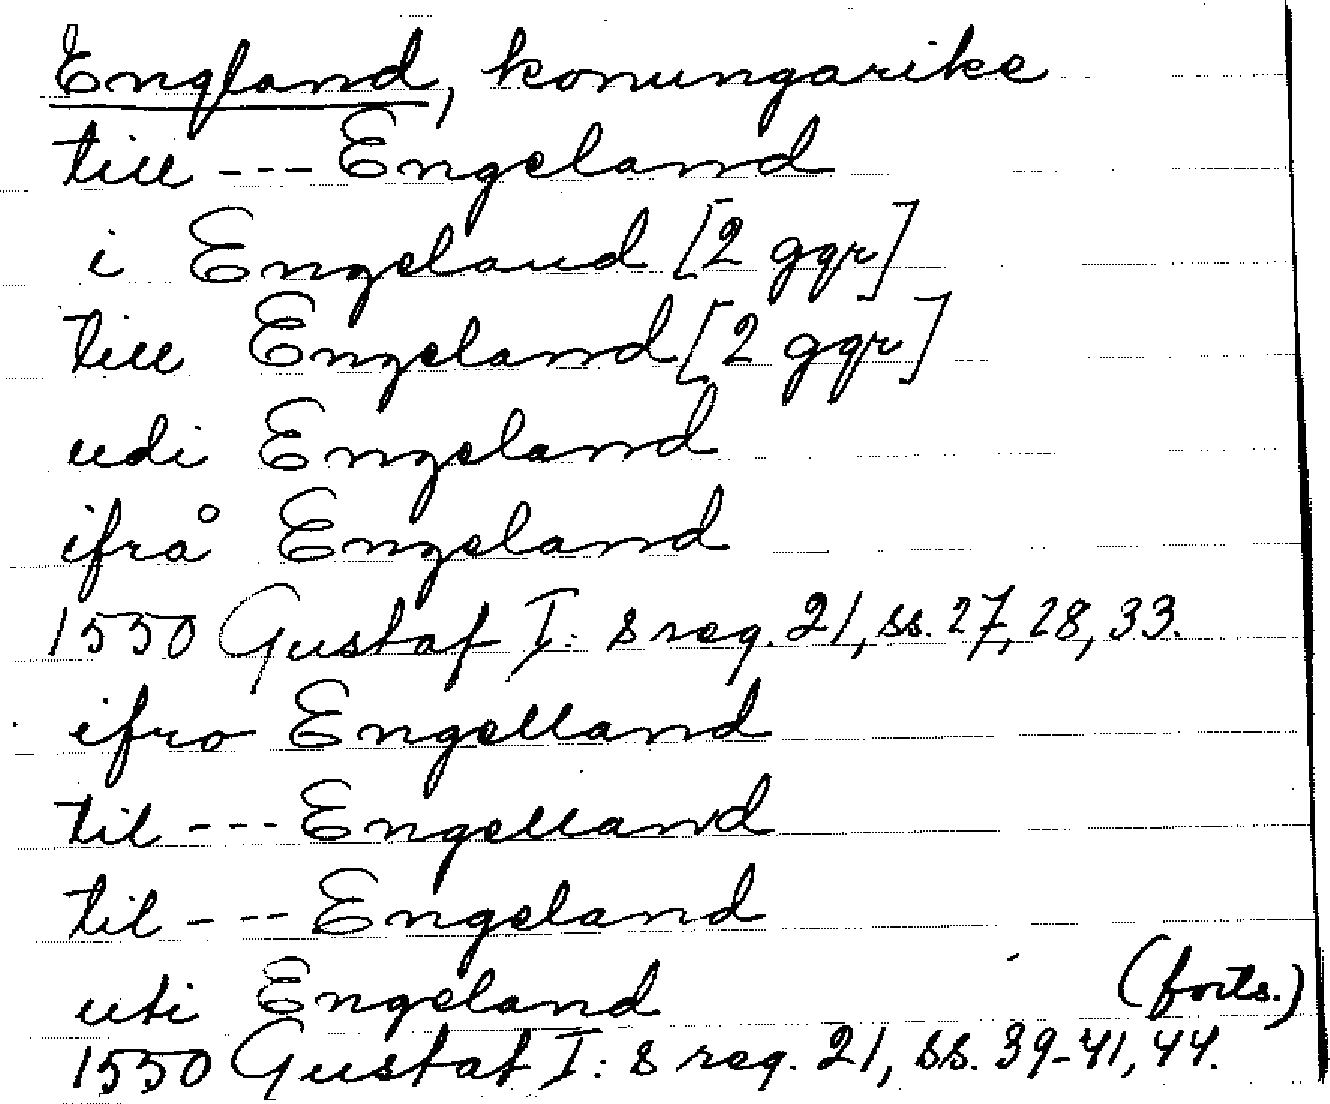 England, konungarike
till --- Engeland
i Engeland [2 ggr]
till Engeland [2 ggr]
udi Engeland
ifrå Engeland
1550 Gustaf I:s reg. 21, ss. 27, 28, 33.
ifro Engelland
til --- Engelland
til --- Engeland
uti Engeland (forts.)
1550 Gustaf I:s reg. 21, ss. 39-41, 44.